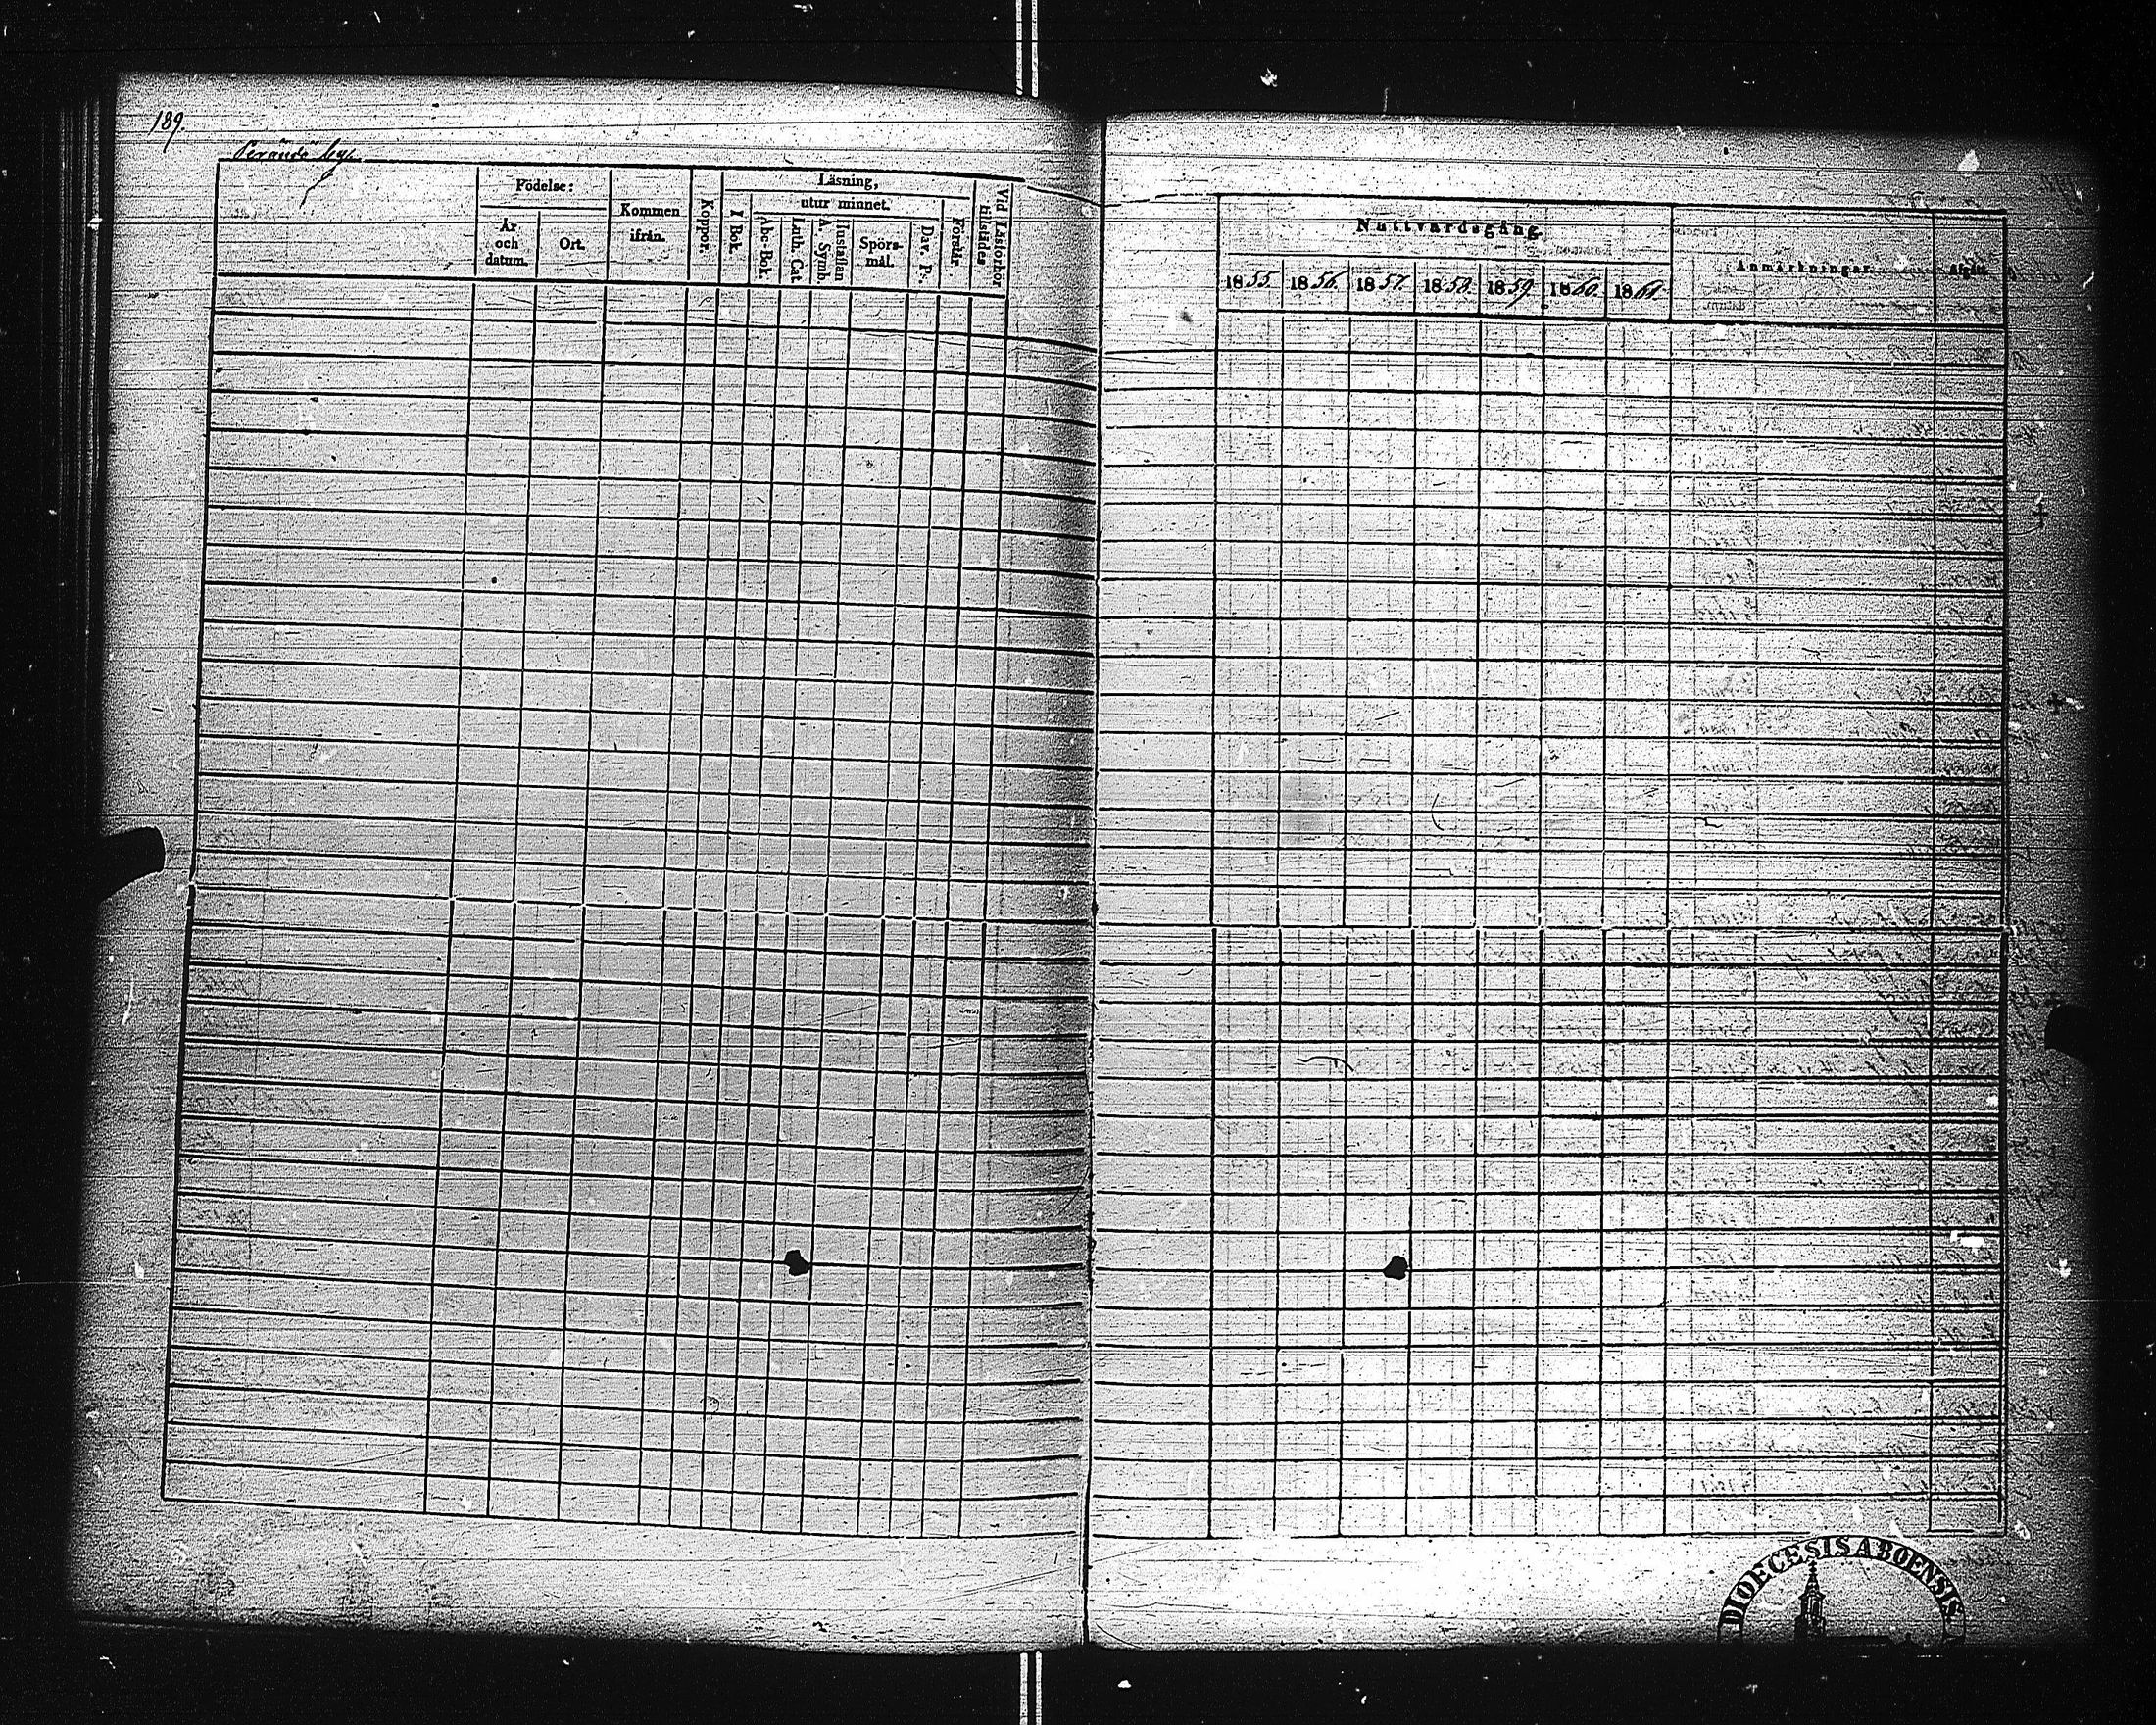 189.
by
Födelse:
År och datum.
Ort.
Kommen ifrån.
Koppor.
Läsning,
I Bok.
utur minnet.
Abc-Bok.
Luth. Cat
Hustaflan A. Symb.
Spörs-mål.
Dav. P.
Förstår
Vid Läsförhör tillstädes
Nattvardsgång.
1855.
1856.
1857.
1858.
1859.
1860.
1861.
Anmärkningar.
Afgått.
DIOECESIS ABOENSIS